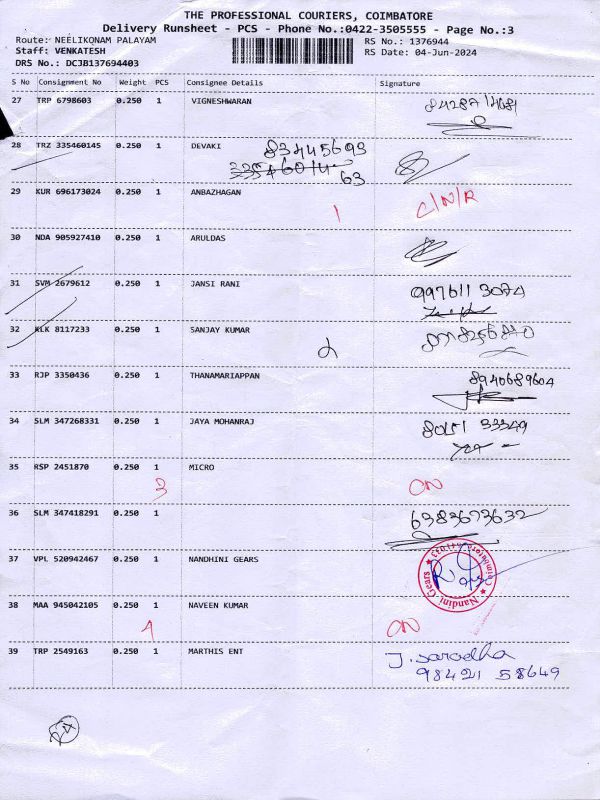 THE PROFESSIONAL COURIERS, COIMBATORE
Delivery Runsheet - PCS - Phone No.:0422-3505555 - Page No.:3
Route: NEELIKONAM PALAYAM
RS No.: 1376944
Staff: VENKATESH
RS Date: 04-Jun-2024
DRS No.: DCJB137694403
S No Consignment No Weight PCS Consignee Details Signature
27 TRP 6798603 0.250 1 VIGNESHWARAN
28 TRZ 335460145 0.250 1 DEVAKI 83445693
63
29 KUR 696173024 0.250 1 ANBAZHAGAN C/N/R
1
30 NDA 905927410 0.250 1 ARULDAS
31 SVM 2679612 0.250 1 JANSI RANI 997611 3074
32 KLK 8117233 0.250 1 SANJAY KUMAR
2
33 RJP 3350436 0.250 1 THANAMARIAPPAN 8940689604
34 SLM 347268331 0.250 1 JAYA MOHANRAJ
35 RSP 2451870 0.250 1 MICRO
3 ON
36 SLM 347418291 0.250 1 6383673632
37 VPL 520942467 0.250 1 NANDHINI GEARS
Nandini Gears
38 MAA 945042105 0.250 1 NAVEEN KUMAR
4 ON
39 TRP 2549163 0.250 1 MARTHIS ENT J. sarodha
98421 58649